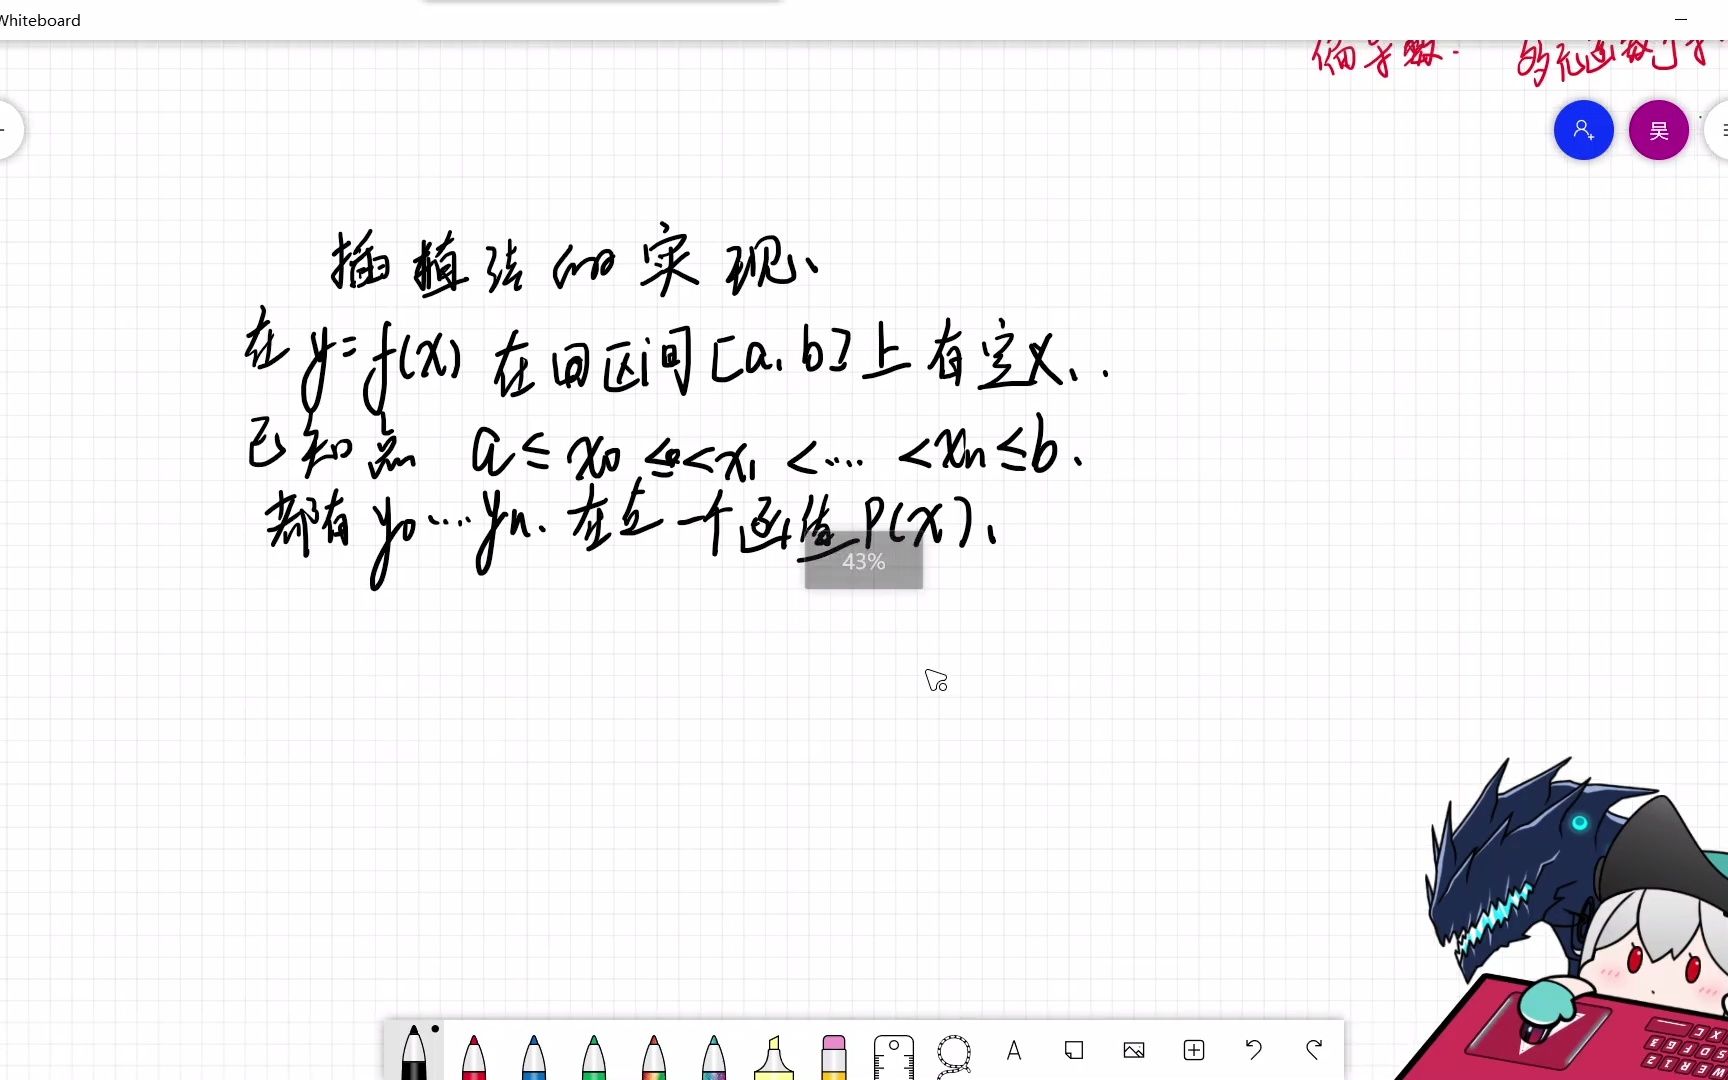 Whiteboard
偏导数.
吴
插值法的实现、
在 y=f(x) 在 区间 [a, b] 上有定义..
已知点 a ≤ x0 < x1 < .... < xn ≤ b.
都有 y0....yn. 存在一个函值 P(x)、
43%
A